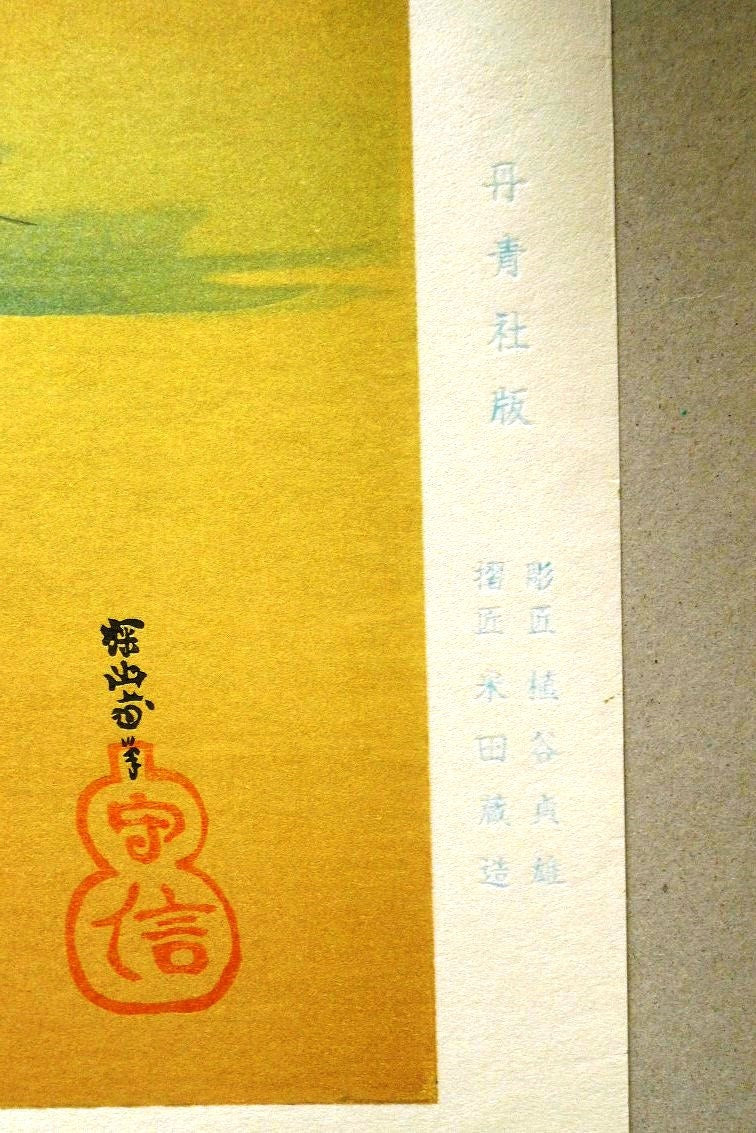 丹青社版
彫匠 植谷貞雄
摺匠 米田蔵造
探幽斎筆
守信